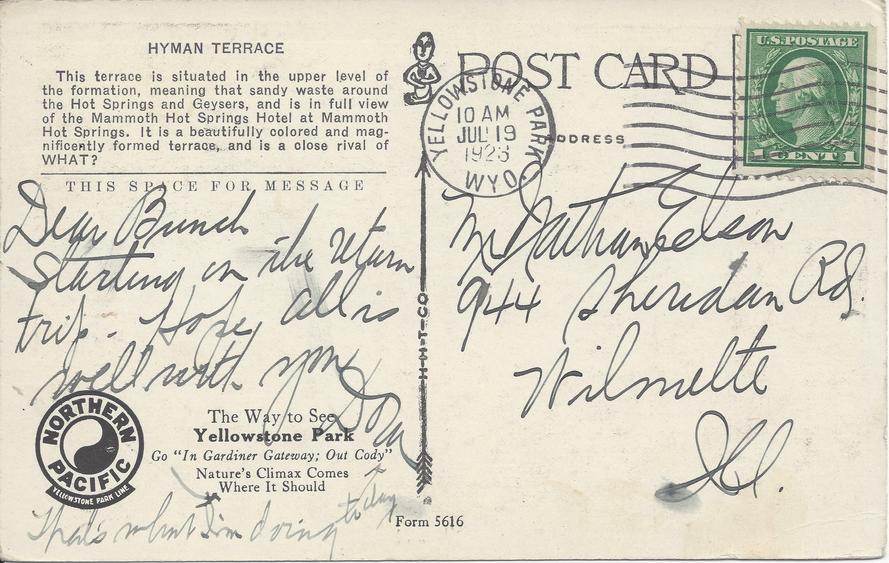 HYMAN TERRACE
This terrace is situated in the upper level of
the formation, meaning that sandy waste around
the Hot Springs and Geysers, and is in full view
of the Mammoth Hot Springs Hotel at Mammoth
Hot Springs. It is a beautifully colored and mag-
nificently formed terrace, and is a close rival of
WHAT?
THIS SPACE FOR MESSAGE
Dear Bunch
Starting on the return
trip. Hope all is
well with you
Don
NORTHERN
PACIFIC
YELLOWSTONE PARK LINE
The Way to See
Yellowstone Park
Go "In Gardiner Gateway; Out Cody"
Nature's Climax Comes
Where It Should
That's what I'm doing today
Form 5616
H-H-T-CO
POST CARD
ADDRESS
YELLOWSTONE PARK,
10 AM
JUL 19
1923
WYO.
U.S. POSTAGE
1 CENT 1
Mr Nathan Edson
944 Sheridan Rd.
Wilmette
Ill.